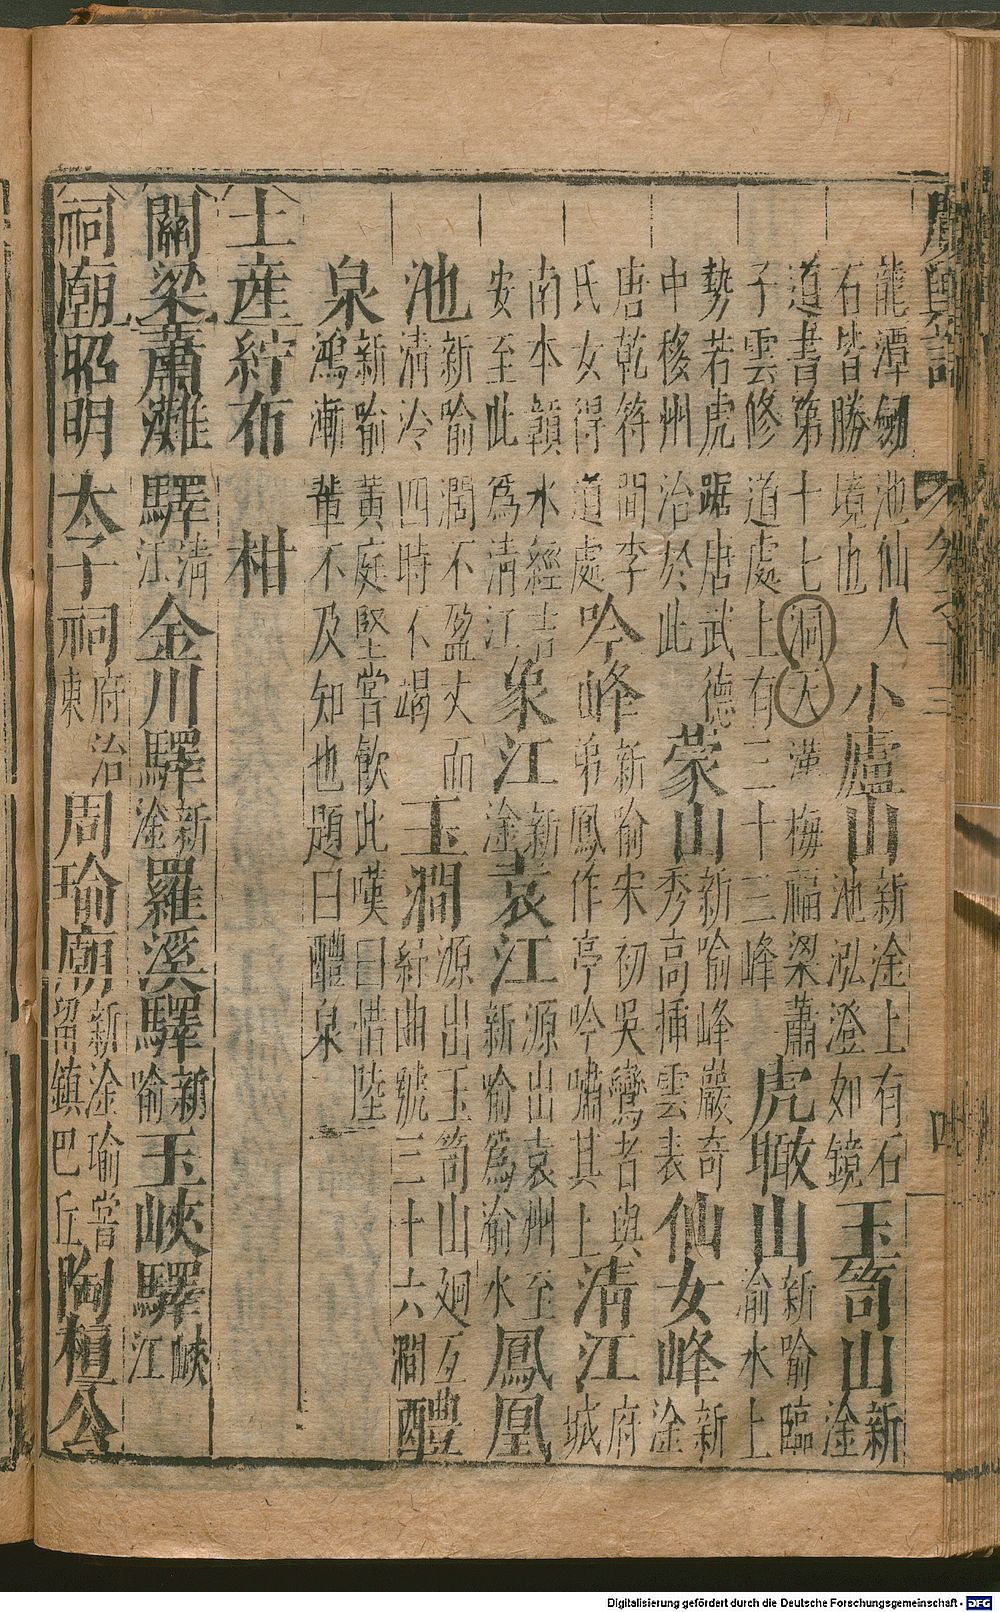 廣輿記 卷之十三
龍潭劒池仙人石皆勝境也 小廬山 新淦上有石池泓澄如鏡 玉笥山 新淦
道書第十七洞天漢梅福梁蕭子雲修道處上有三十三峰 虎瞰山 新喻臨渝水上
勢若虎踞唐武德中移州治於此 蒙山 新喻峰巖奇秀高挿雲表 仙女峰 新淦
唐乾符間李氏女得道處 吟峰 新喻宋初吳鸞者與弟鳳作亭吟嘯其上 清江 府城
南本贛水經吉安至此爲清江 象江 新淦 袁江 源出袁州至新喻爲渝水 鳳凰
池 新喻濶不盈丈而清冷四時不竭 玉澗 源出玉笥山廻互紆曲號三十六澗 醴
泉 新喻黃庭堅嘗飲此嘆曰惜陸鴻漸輩不及知也題曰醴泉
土產 紵布 柑
關梁 蕭灘驛 清江 金川驛 新淦 羅溪驛 新喻 玉峽驛 峽江
祠廟 昭明太子祠 府治東 周瑜廟 新淦瑜嘗留鎮巴丘 陶桓公
Digitalisierung gefördert durch die Deutsche Forschungsgemeinschaft - DFG